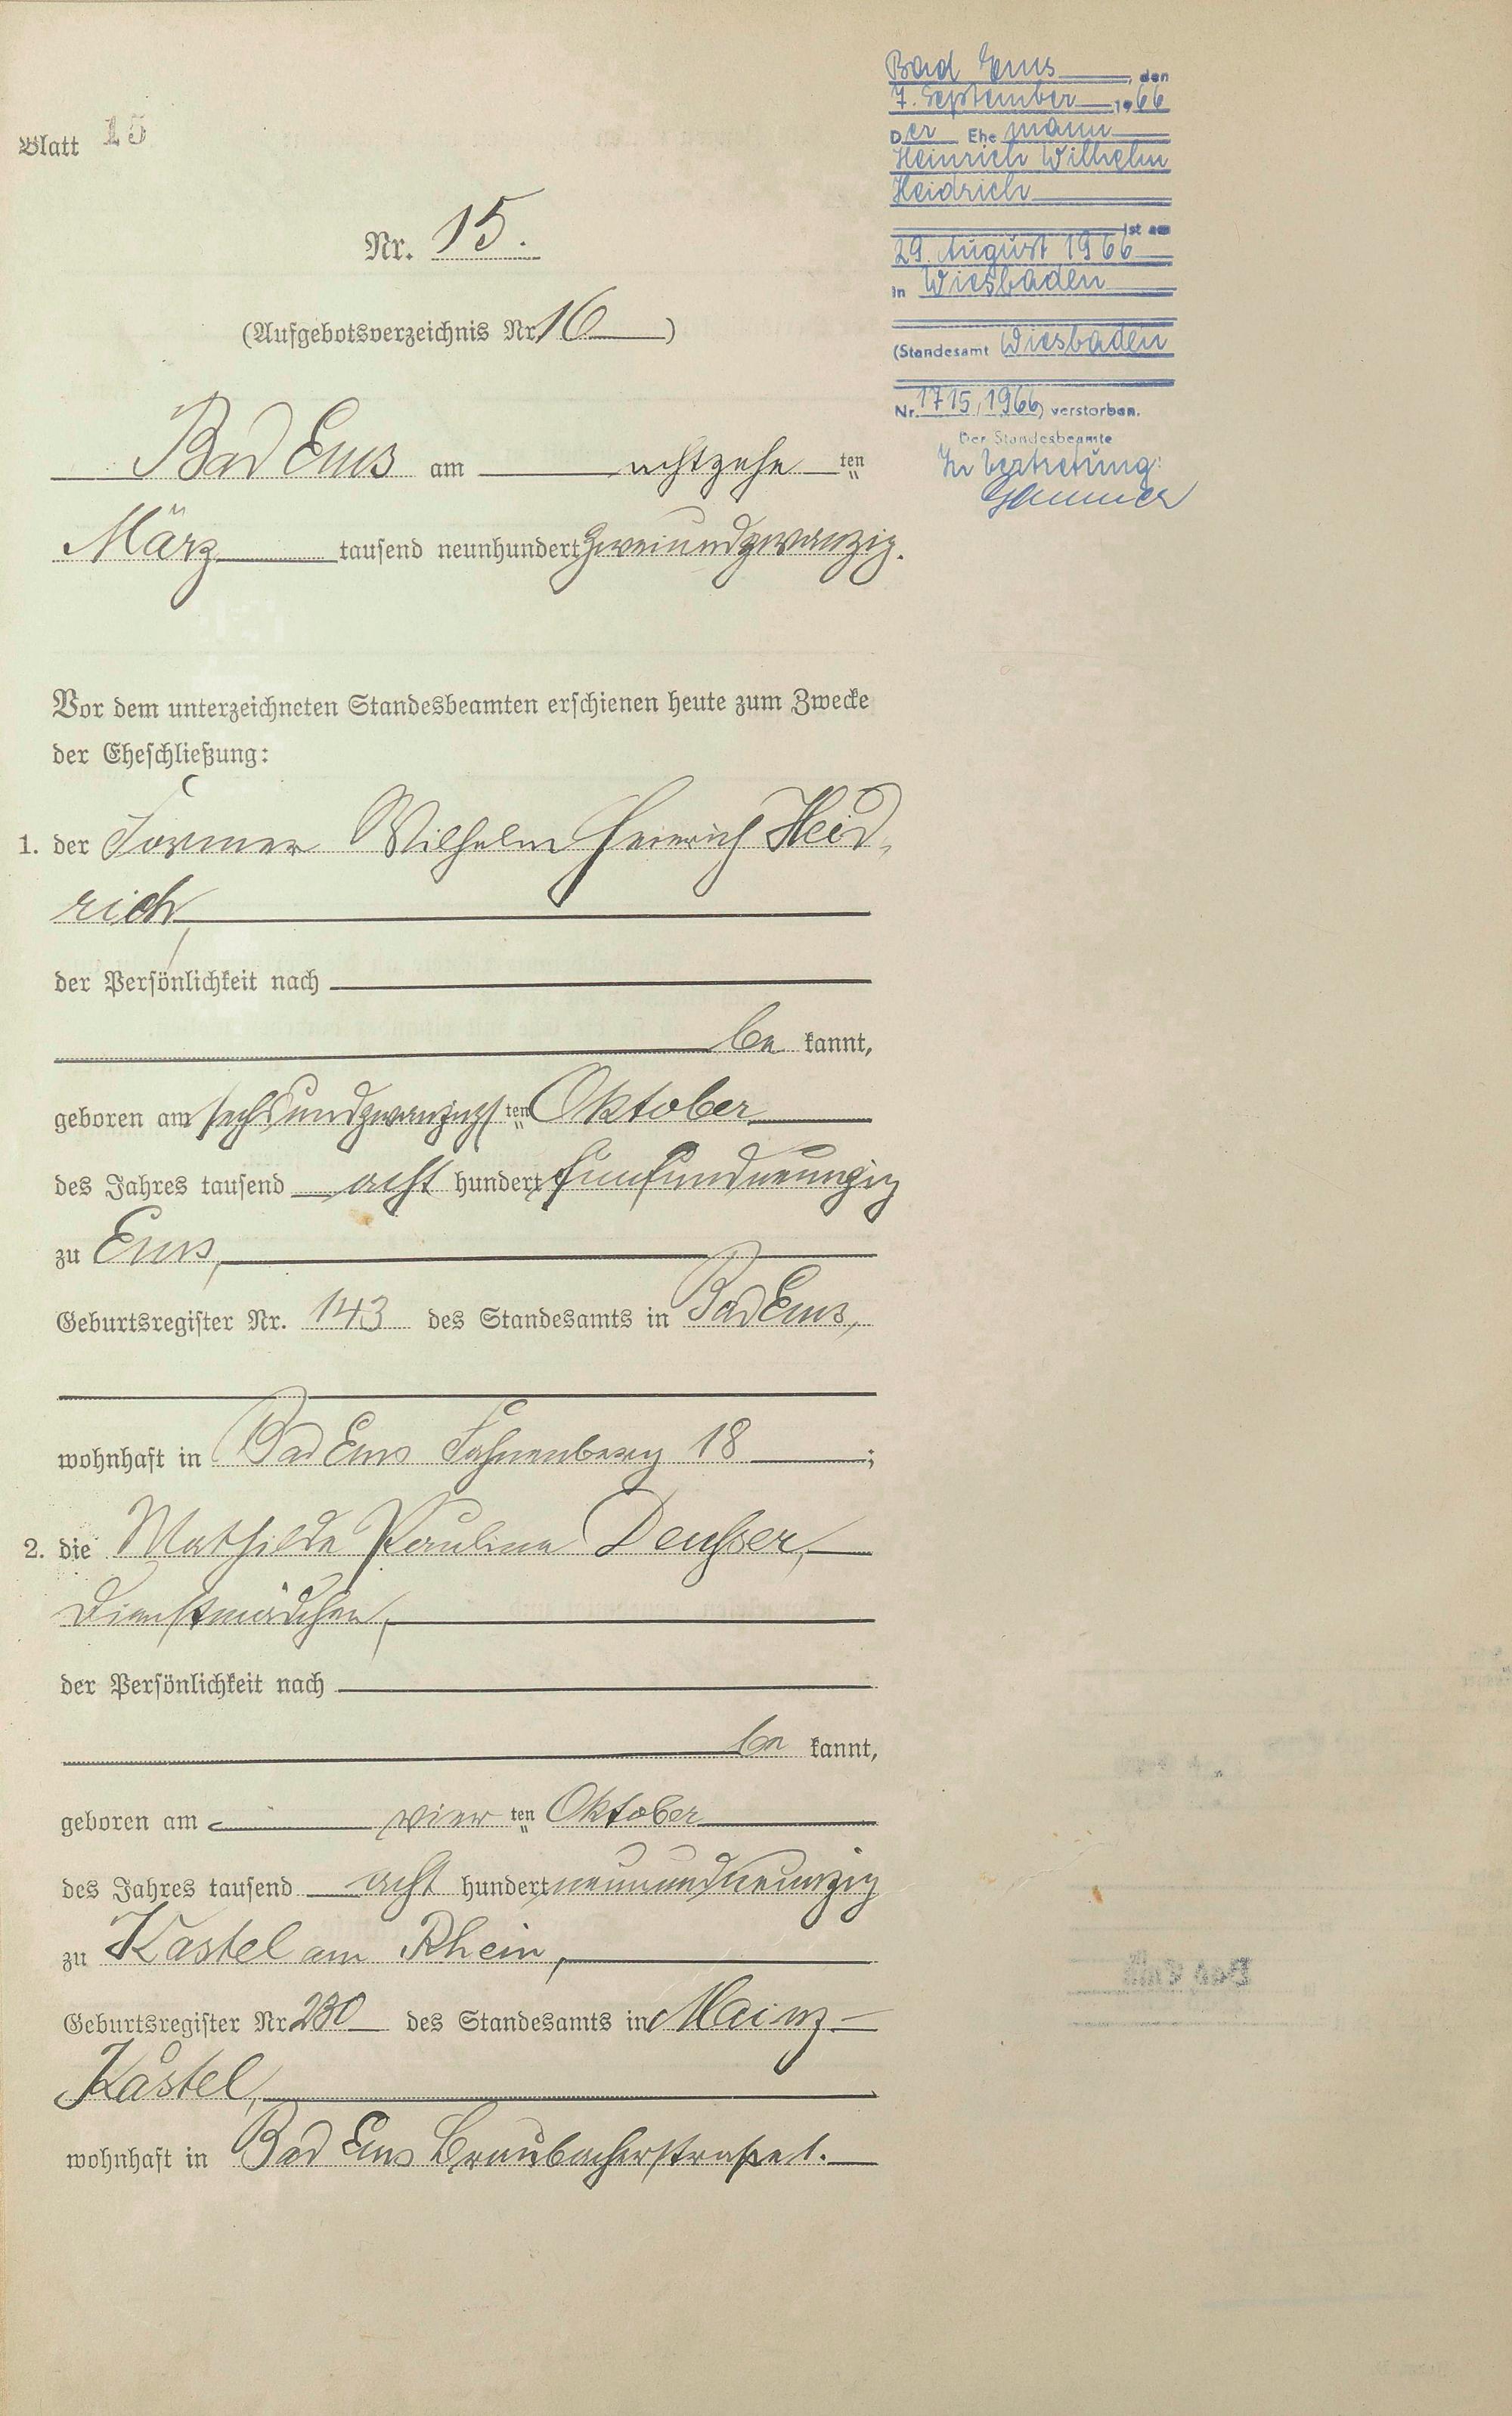 Blatt 15
Nr. 15.
(Aufgebotsverzeichnis Nr. 16)
Bad Ems am achtzehn ten
März tausend neunhundert zweiundzwanzig.
Vor dem unterzeichneten Standesbeamten erschienen heute zum Zwecke
der Eheschließung:
1. der Former Wilhelm Heinrich Heid-
rich,
der Persönlichkeit nach
be kannt,
geboren am sechsundzwanzigs ten Oktober
des Jahres tausend acht hundert fünfundneunzig
zu Ems,
Geburtsregister Nr. 143 des Standesamts in Bad Ems,
wohnhaft in Bad Ems Fahnenberg 18;
2. die Mathilde Pauline Deusser,
Dienstmädchen,
der Persönlichkeit nach
be kannt,
geboren am vier ten Oktober
des Jahres tausend acht hundert neunundneunzig
zu Kastel am Rhein,
Geburtsregister Nr. 230 des Standesamts in Mainz-
Kastel,
wohnhaft in Bad Ems Braubacherstraße 1.
Bad Ems, den
7. September 1966
Der Ehemann
Heinrich Wilhelm
Heidrich
ist am
29. August 1966
in Wiesbaden
(Standesamt Wiesbaden
Nr. 1715/1966) verstorben.
Der Standesbeamte
In Vertretung: